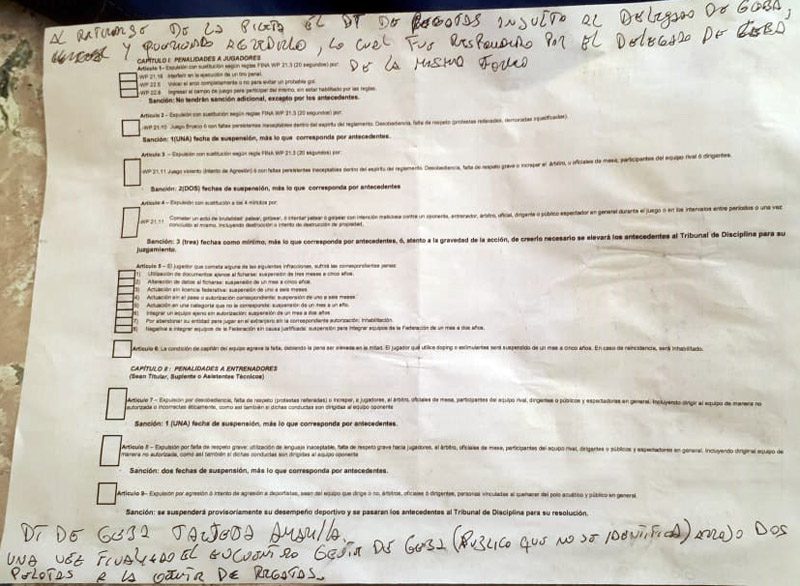 AL RETIRARSE DE LA PILETA EL DT DE REGATAS INSULTO AL DELEGADO DE GEBA,
Y QUERIENDO AGREDIRLO, LO CUAL FUE RESPONDIDO POR EL DELEGADO DE GEBA
DE LA MISMA FORMA
CAPÍTULO I: PENALIDADES A JUGADORES
Artículo 1– Expulsión con sustitución según reglas FINA WP 21.3 (20 segundos) por:
WP 21.16 Interferir en la ejecución de un tiro penal.
WP 22.5 Volcar el arco completamente o no para evitar un probable gol.
WP 22.8 Ingresar al campo de juego para participar del mismo, sin estar habilitado por las reglas.
Sanción: No tendrán sanción adicional, excepto por los antecedentes.
Artículo 2 – Expulsión con sustitución según reglas FINA WP 21.3 (20 segundos) por:
WP 21.10 Juego Brusco ó con faltas persistentes inaceptables dentro del espíritu del reglamento. Desobediencia, falta de respeto (protestas reiteradas, demoras injustificadas).
Sanción: 1(UNA) fecha de suspensión, más lo que corresponda por antecedentes.
Artículo 3 – Expulsión con sustitución según regla FINA WP 21.3 (20 segundos) por:
WP 21.11 Juego violento (intento de Agresión) ó con faltas persistentes inaceptables dentro del espíritu del reglamento. Desobediencia, falta de respeto grave o increpar al árbitro, u oficiales de mesa, participantes del equipo rival ó dirigentes.
Sanción: 2(DOS) fechas de suspensión, más lo que corresponda por antecedentes
Artículo 4 – Expulsión con sustitución a los 4 minutos por:
WP 21.11 Cometer un acto de brutalidad: patear, golpear, ó intentar patear ó golpear con intención maliciosa contra un oponente, entrenador, árbitro, oficial, dirigente o público espectador en general durante el juego o en los intervalos entre períodos o una vez
concluido el mismo, incluyendo destrucción o intento de destrucción de propiedad.
Sanción: 3 (tres) fechas como mínimo, más lo que corresponda por antecedentes, ó, atento a la gravedad de la acción, de creerlo necesario se elevará los antecedentes al Tribunal de Disciplina para su
juzgamiento.
Artículo 5 – El jugador que cometa alguna de las siguientes infracciones, sufrirá las correspondientes penas:
1) Utilización de documentos ajenos al ficharse: suspensión de tres meses a cinco años.
2) Alteración de datos al ficharse: suspensión de un mes a cinco años.
3) Actuación sin licencia federativa: suspensión de uno a seis meses
4) Actuación sin el pase o autorización correspondiente: suspensión de uno a seis meses
5) Actuación en una categoría que no le corresponda: suspensión de un mes a un año.
6) Integrar un equipo ajeno sin autorización: suspensión de un mes a dos años.
7) Por abandonar su entidad para jugar en el extranjero sin la correspondiente autorización: inhabilitación.
8) Negativa a integrar equipos de la Federación sin causa justificada: suspensión para integrar equipos de la Federación de un mes a dos años.
Artículo 6: La condición de capitán del equipo agrava la falta, debiendo la pena ser elevada en la mitad. El jugador que utilice doping o estimulantes será suspendido de un mes a cinco años. En caso de reincidencia, será inhabilitado.
CAPÍTULO II : PENALIDADES A ENTRENADORES
(Sean Titular, Suplente o Asistentes Técnicos)
Artículo 7 – Expulsión por desobediencia, falta de respeto (protestas reiteradas) o increpar, a jugadores, al árbitro, oficiales de mesa, participantes del equipo rival, dirigentes o públicos y espectadores en general. Incluyendo dirigir al equipo de manera no
autorizada o incorrectas éticamente, como así también si dichas conductas son dirigidas al equipo oponente
Sanción: 1 (UNA) fecha de suspensión, más lo que corresponda por antecedentes.
Artículo 8 – Expulsión por falta de respeto grave: utilización de lenguaje inaceptable, falta de respeto grave hacia jugadores, al árbitro, oficiales de mesa, participantes del equipo rival, dirigentes o públicos y espectadores en general. Incluyendo dirigir al equipo de
manera no autorizada, como así también si dichas conductas son dirigidas al equipo oponente
Sanción: dos fechas de suspensión, más lo que corresponda por antecedentes.
Artículo 9– Expulsión por agresión ó intento de agresión a deportistas, sean del equipo que dirige o no, árbitros, oficiales ó dirigentes, personas vinculadas al quehacer del polo acuático y público en general.
Sanción: se suspenderá provisoriamente su desempeño deportivo y se pasaran los antecedentes al Tribunal de Disciplina para su resolución.
DT DE GEBA TARJETA AMARILLA.
UNA VEZ FINALIZADO EL ENCUENTRO GENTE DE GEBA (PUBLICO QUE NO SE IDENTIFICA) ARROJO DOS
PELOTAS A LA GENTE DE REGATAS.